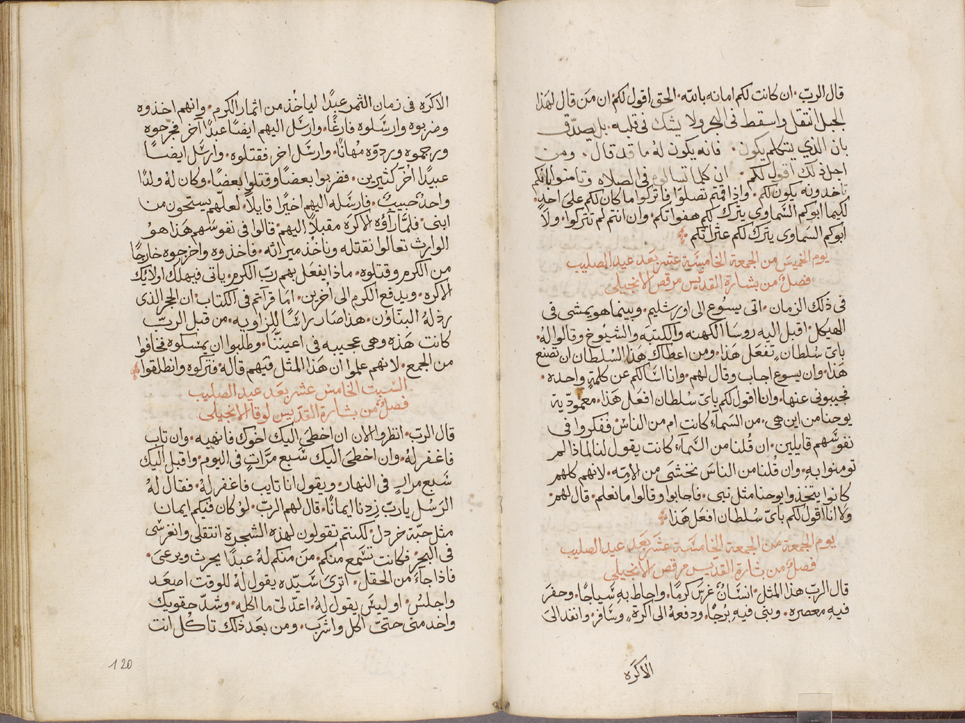 قال الربّ ان كانت لكم امانه بالله الحق اقول لكم ان من قال لهذا
الجبل انتقل واسقط في البحر ولا يشك في قلبه بل يصدّق
بان الذي يتكلم يكون فانه يكون له ما قد قال ومن
اجل ذلك اقول لكم ان كلما تسالوه في الصلاه وتامنوا بانكم
تاخدونه يكون لكم واذا قمتم تصلوّا فاتركوا ما كان لكم على احدٍ
لكيما ابوكم السماوي يترك لكم هفواتكم وان انتم لم تتركوا ولا
ابوكم السماوي يترك لكم عثراتكم
يوم الخميس من الجمعة الخامسة عشر بعد عيد الصليب
فصل من بشارة القديس مرقص الانجيلي
في ذلك الزمان اتى يسوع الى اورشليم وبينما هو يمشى في
الهيكل اقبل اليه روسا الكهنه والكتبه والشيوخ وقالوا له
بايّ سلطان تفعل هذا ومن اعطاك هذا السلطان ان تصنع
هذا وان يسوع اجاب وقال لهم وانا اسالكم عن كلمةٍ واحده
تجيبوني عنها وانا اقول لكم بايّ سلطان افعل هذا معموديّة
يوحنا من اين هي من السماء كانت ام من الناس ففكروا في
نفوسهم قايلين ان قلنا من السماء كانت يقول لنا لماذا لم
تومنوا به وان قلنا من الناس نخشى من الامّه لانهم كلهم
كانوا يتخذوا يوحنا مثل نبي فاجابوا وقالوا ما نعلم قال لهم
ولا انا اقول لكم بايّ سلطان افعل هذا
يوم الجمعة من الجمعة الخامسة عشر بعد عيد الصليب
فصل من بشارة القديس مرقص الانجيلي
قال الربّ هذا المثل انسانٌ غرس كرمًا واحاط به سياجًا وحفر
فيه معصره وبنى فيه برُجًا ودفعهُ الى اكرَة وسافر وانفد الى
الاكَره
الاكَرَه في زمان الثمر عبدًا لياخُذ من اثمار الكرم وانهم اخذوه
وضربوه وارسَلوه فارغًا وارسَل اليهم ايضًا عبدًا آخر فجّرحوه
ورجموه وردّوه مُهانًا وارسَل اخر فقتلوه وارسَل ايضًا
عبيدًا اخر كثيرين فضربوا بعضًا وقتلوا بعضًا وكان لهُ ولدًا
واحدًا حبيبًا فارسَله اليهم اخيرًا قايلاً لعلّهم يستحون من
ابنى فلمّا رآوه الاكرة مقبلاً اليهم قالوا في نفوسهم هذا هو
الوارث تعالوا نقتله وناخذ ميراثه فاخذوه واخرجوه خارجًا
من الكرم وقتلوه ماذا يفعل بهم ربّ الكرم ياتى فيهلك اولايك
الاكره ويدفع الكرم الى اخرين اما قراتم في الكتاب ان الحجر الذى
رذلهُ البناؤن هذا صار راسًا للزاويه من قبل الربّ
كانت هذه وهى عجيبه في اعيننا وطلبوا ان يمسكوه فخافوا
من الجمع لانهم علموا ان هذا المثل فيهم قاله فتركوه وانطلقوا
السبت الخامس عشر بعد عيد الصليب
فصلٌ من بشارة القديس لوقا الانجيلي
قال الربّ انظروا الان ان اخطى اليك اخوك فانهيه وان تاب
فاغفر لهُ وان اخطى اليك سَبع مرّاتٍ في اليوم واقبل اليك
سَبع مرارٍ في النهار ويقول انا تايب فاغفر لهُ فقال لهُ
الرسُل ياربّ زدنا ايمانًا قال لهم الربّ لو كان فيكم ايمان
مثل حبة خردل لكنتم تقولون لهذه الشجرة انتقلى وانغرسى
في البحر فكانت تسَمع منكم من منكم لهُ عبدًا يحرث ويرعى
فاذا جآء من الحقل اترى سيّده يقول لهُ للوقت اصعَد
واجلسُ او ليس يقول لهُ اعدّ لى ما اكله وشدّ حقويك
واخدمنى حتى اكل واشرَب ومن بعد ذلك تاكُل انت
120